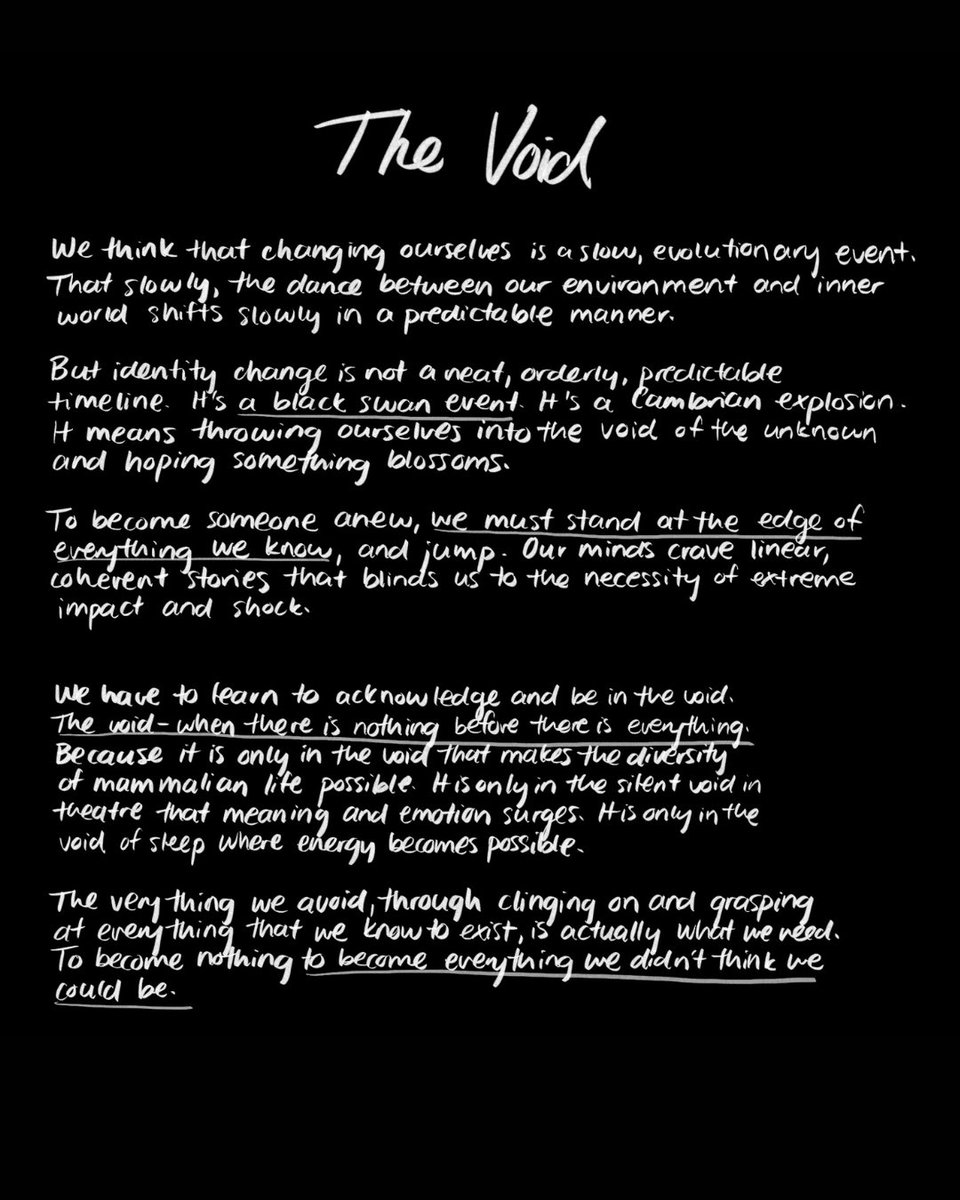 The Void
We think that changing ourselves is a slow, evolutionary event.
That slowly, the dance between our environment and inner
world shifts slowly in a predictable manner.
But identity change is not a neat, orderly, predictable
timeline. It's a black swan event. It's a Cambrian explosion.
It means throwing ourselves into the void of the unknown
and hoping something blossoms.
To become someone anew, we must stand at the edge of
everything we know, and jump. Our minds crave linear,
coherent stories that blinds us to the necessity of extreme
impact and shock.
We have to learn to acknowledge and be in the void.
The void - when there is nothing before there is everything.
Because it is only in the void that makes the diversity
of mammalian life possible. It is only in the silent void in
theatre that meaning and emotion surges. It is only in the
void of sleep where energy becomes possible.
The very thing we avoid, through clinging on and grasping
at everything that we know to exist, is actually what we need.
To become nothing to become everything we didn't think we
could be.